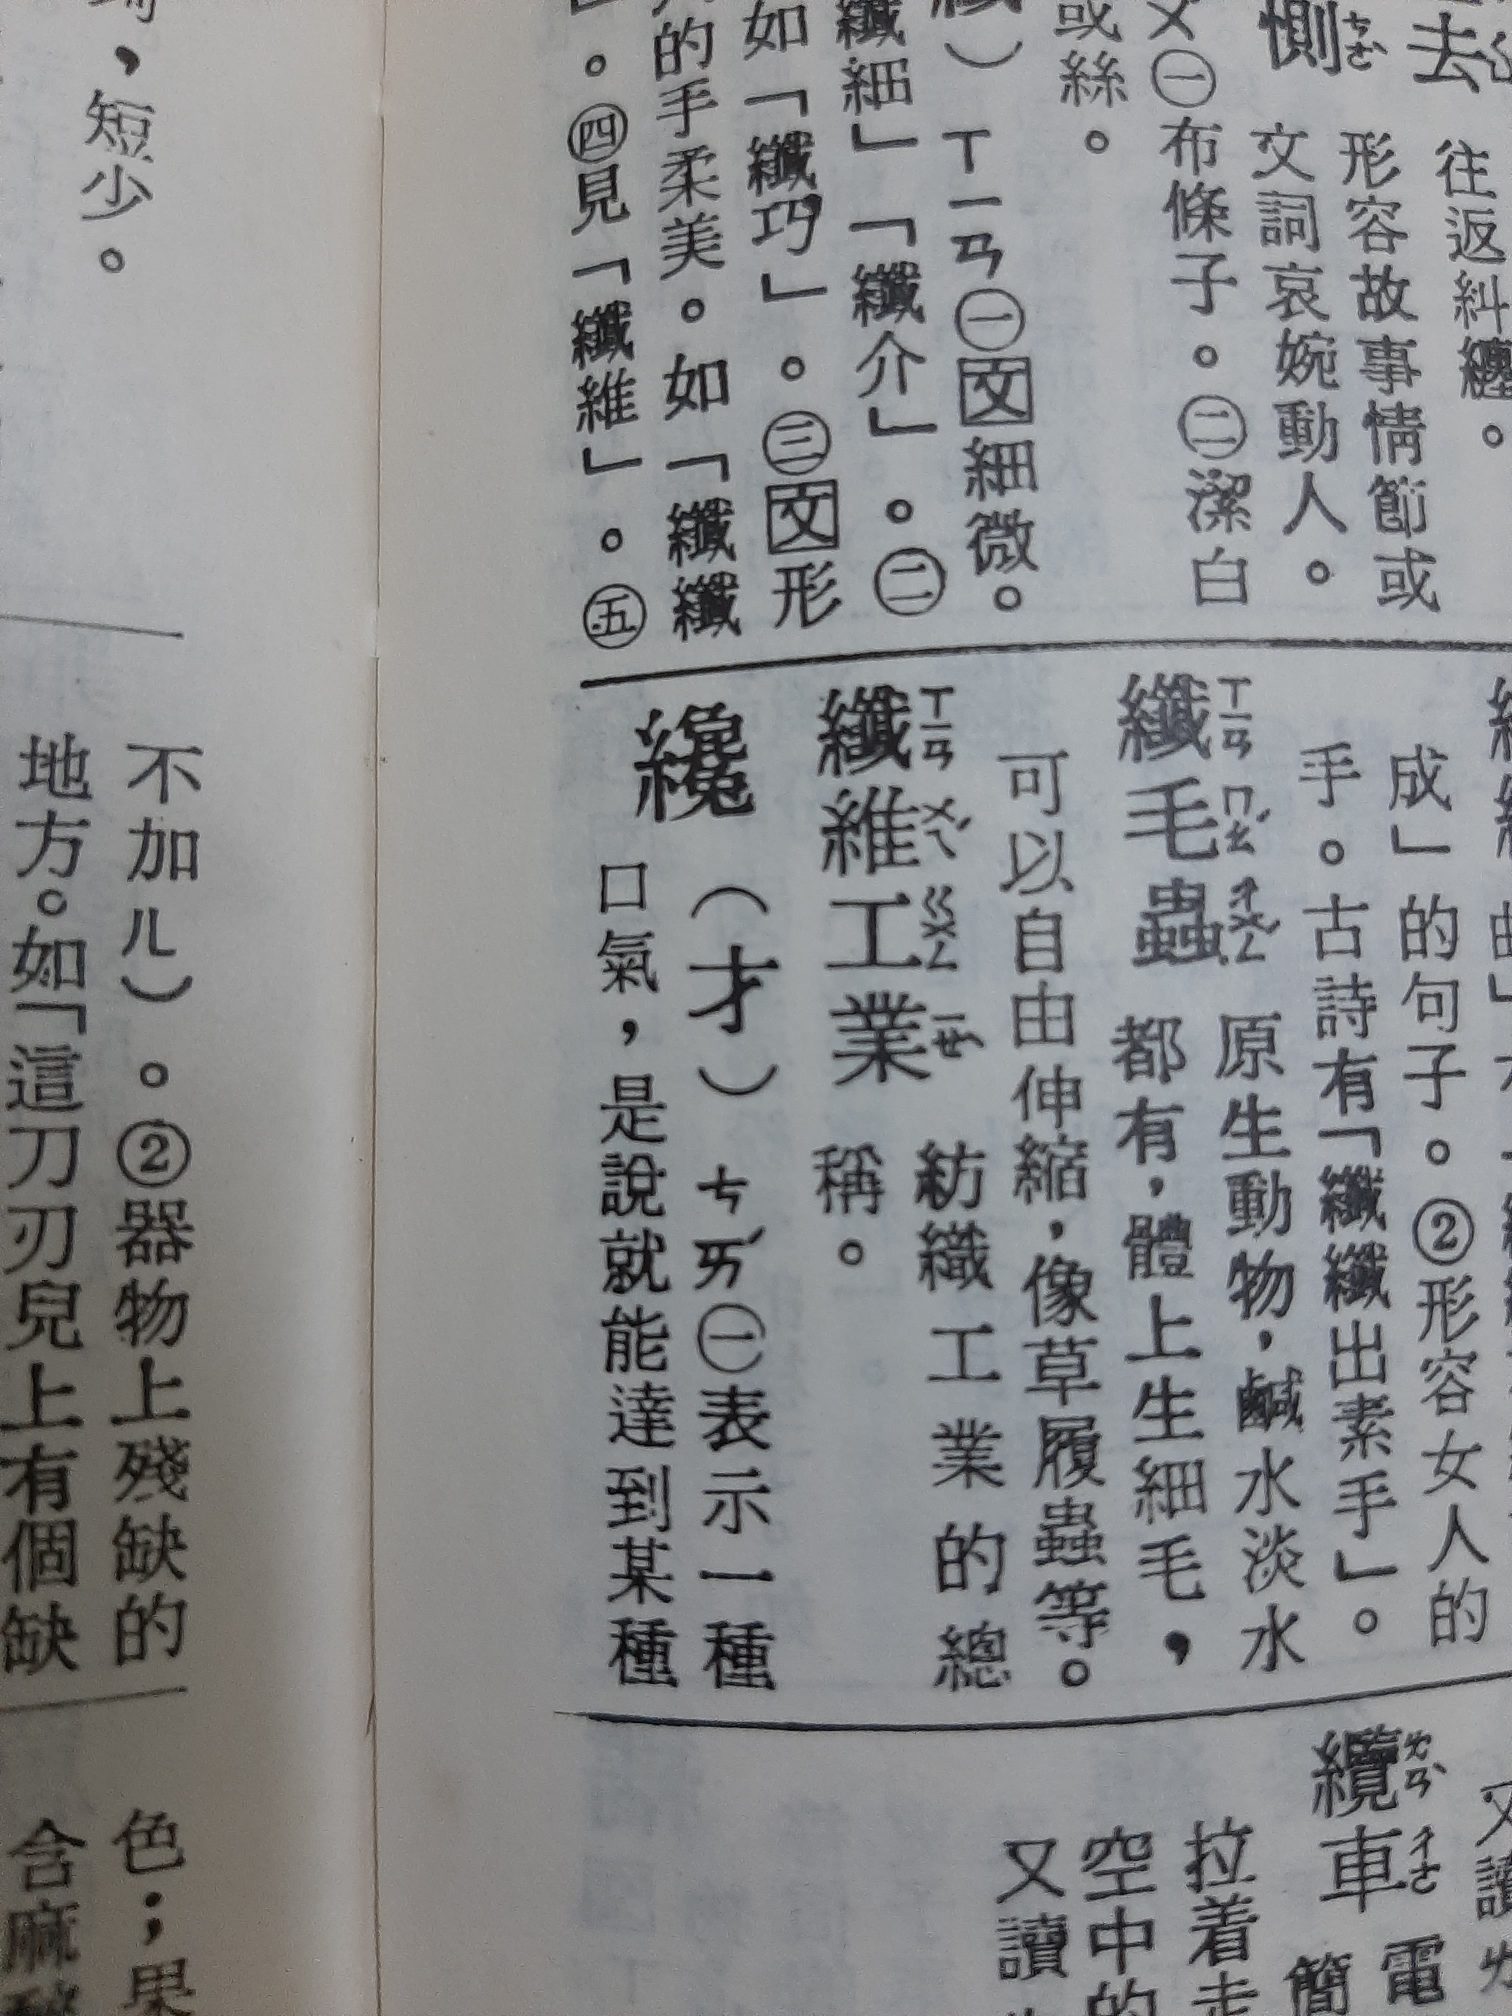 往返糾纏。
形容故事情節或
文詞哀婉動人。
㊀布條子。㊁潔白
或絲。
）ㄒㄧㄢ㊀文細微。
纖細」「纖介」。㊁
如「纖巧」。㊂文形
的手柔美。如「纖纖
」。㊃見「纖維」。㊄
成」的句子。②形容女人的
手。古詩有「纖纖出素手」。
纖毛蟲 ㄒㄧㄢ ㄇㄠˊ ㄔㄨㄥˊ
原生動物，鹹水淡水
都有，體上生細毛，
可以自由伸縮，像草履蟲等。
纖維工業 ㄒㄧㄢ ㄨㄟˊ ㄍㄨㄥ ㄧㄝˋ
紡織工業的總
稱。
纔（才）ㄘㄞˊ㊀表示一種
口氣，是說就能達到某種
纜車 ㄌㄢˇ ㄔㄜ
電
簡
拉着走
空中的
又讀
，短少。
不加ㄦ）。②器物上殘缺的
地方。如「這刀刃兒上有個缺
色；果
含麻